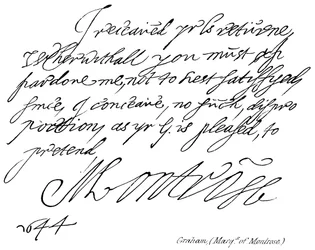 I receaved yr Ls returne,
wherwithall you must
pardone me, not to rest satisfyed,
since, I conceave, no such, dispro
portion, as yr L, is pleased, to
pretend
Montrose
1644
Graham, (Marq. of Montrose)